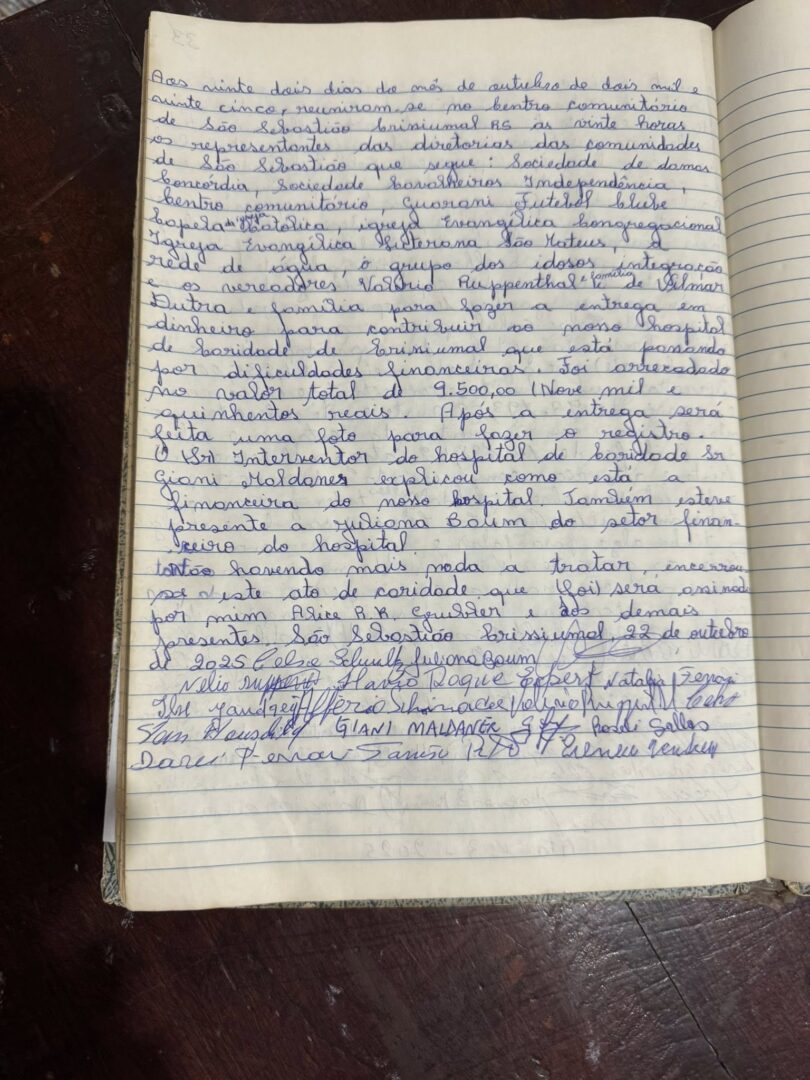 33
Aos vinte dois dias do mês de outubro de dois mil e
vinte cinco, reuniram-se no Centro comunitário
de São Sebastião Crissiumal RS às vinte horas
os representantes das diretorias das comunidades
de São Sebastião que segue: Sociedade de damas
Concórdia, Sociedade Cavalheiros Independência,
Centro comunitário, Guarani Futebol Clube
Capela da igreja Católica, igreja Evangélica Congregacional
Igreja Evangélica Luterana São Mateus, a
rede de água, o grupo dos idosos integração
e os vereadores Valério Ruppenthal e família e de Vilmar
Dutra e família para fazer a entrega em
dinheiro para contribuir ao nosso hospital
de Caridade de Crissiumal que está passando
por dificuldades financeiras. Foi arrecadado
no valor total de 9.500,00 (Nove mil e
quinhentos reais. Após a entrega será
feita uma foto para fazer o registro.
O (Sr) Interventor do hospital de Caridade Sr
Giani Maldaner explicou como está a
financeira do nosso hospital. Também esteve
presente a Juliana Baum do setor finan-
ceiro do hospital.
Não havendo mais nada a tratar, encerrou
se este ato de caridade que (foi) será assinado
por mim Alice A.K. e aos demais
presentes. São Sebastião Crissiumal, 22 de outubro
de 2025 Celso Schultz Juliana Baum
Nelio Flavio Roque Expert Natalia Ferrazi
Ilse
GIANI MALDANER Roseli Sallas
Darci